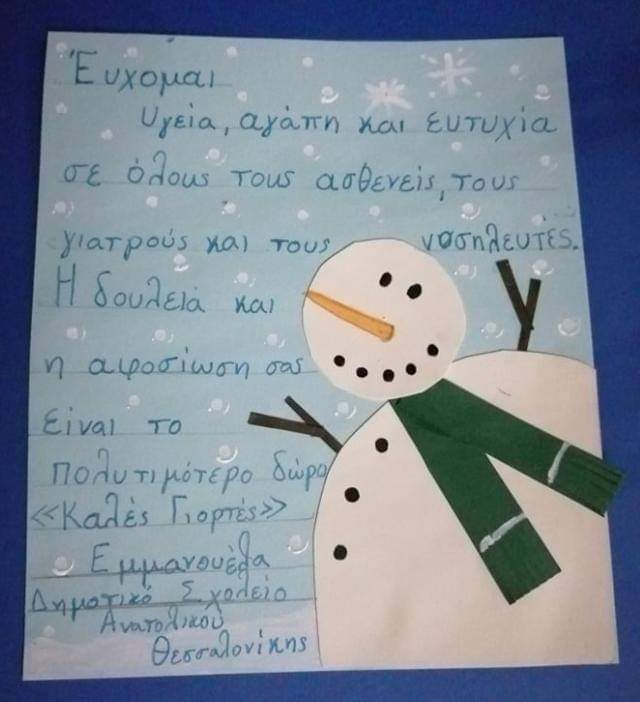 Εύχομαι
υγεία, αγάπη και ευτυχία
σε όλους τους ασθενείς, τους
γιατρούς και τους νοσηλευτές.
Η δουλειά και
η αιφοσίωση σας
είναι το
πολυτιμότερο δώρο
«Καλές Γιορτές»
Εμμανουέλα
Δημοτικό Σχολείο
Ανατολικού
Θεσσαλονίκης